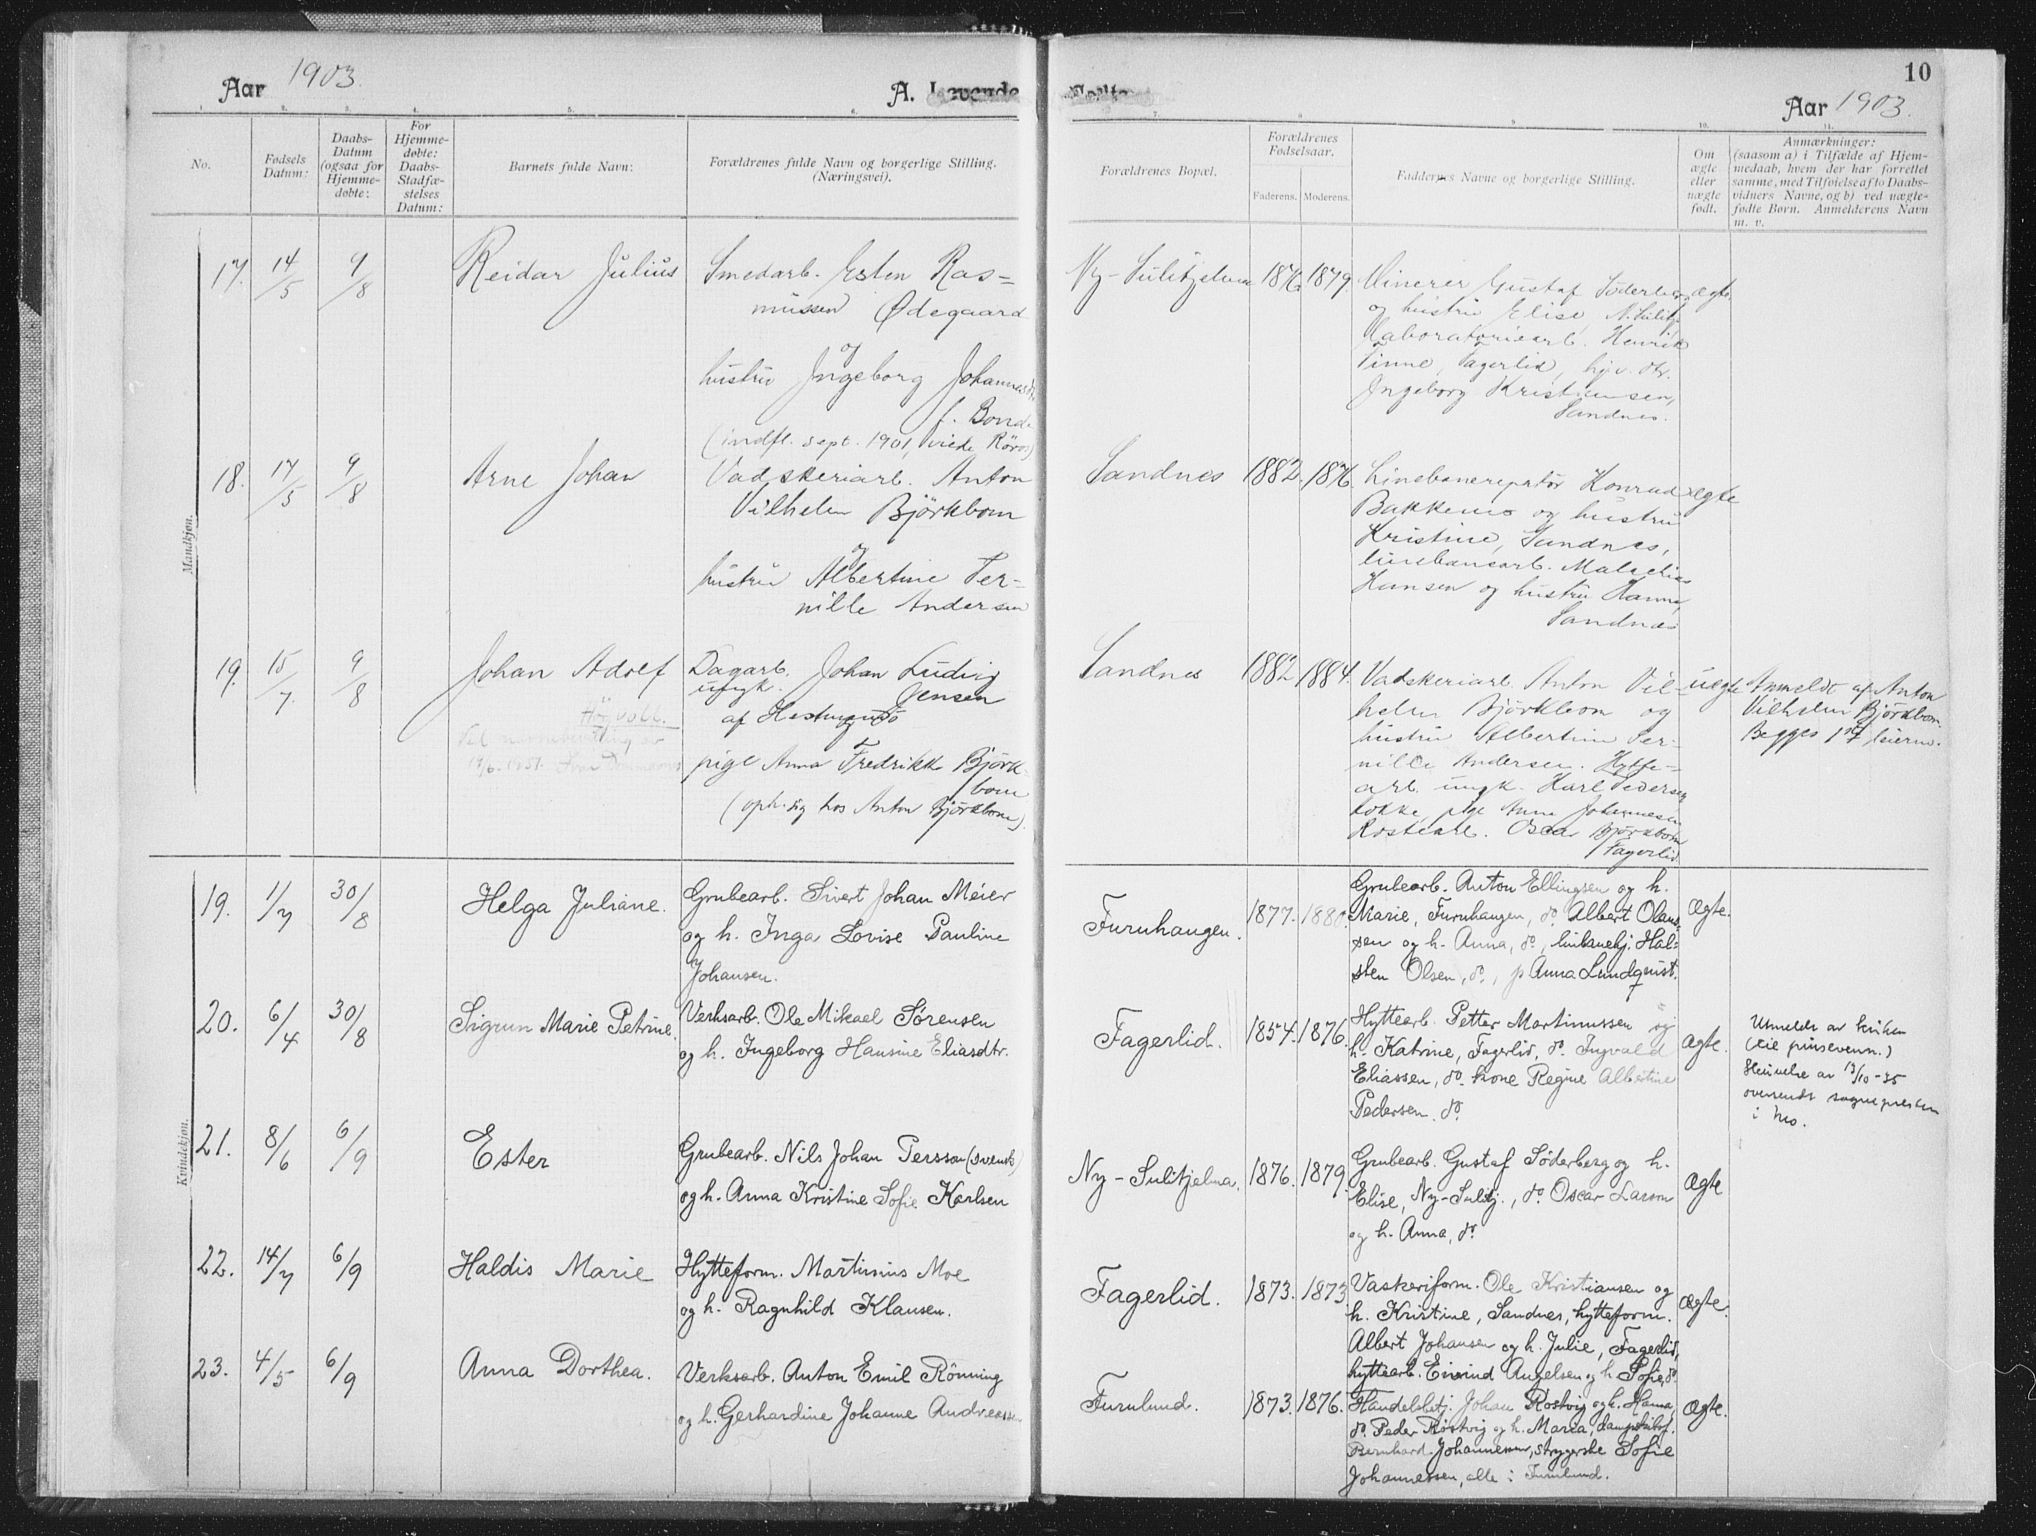 Aar 1903. A. Levende
Fødte Aar 1903.
10
1. 2. 3. 4. 5. 6.
7. 8. 9. 10. 11.
No.
Fødsels
Datum:
Daabs-
Datum
(ogsaa for
Hjemme-
døbte:
For
Hjemme-
døbte:
Daabs-
Stadfæ-
stelses
Datum:
Barnets fulde Navn:
Forældrenes fulde Navn og borgerlige Stilling.
(Næringsvei).
Forældrenes Bopæl.
Forældrenes
Fødselsaar.
Faderens. Moderens.
Faddernes Navne og borgerlige Stilling.
Om
ægte
eller
uægte
født.
Anmærkninger:
(saasom a) i Tilfælde af Hjem-
medaab, hvem der har forrettet
samme, med Tilføielse af to Daabs-
vidners Navne, og b) ved uægte-
fødte Børn. Anmelderens Navn
m. v.
Mandkjøn.
17. 14/5 9/8 Reidar Julius
Smedarb. Esten Ras-
mussen Ødegaard
og
hustru Ingeborg Johannesdtr.
f. Bonde
(indfl. sept. 1901, viede Röros)
Ny-Sulitjelma 1876. 1879.
Minerer Gustaf Söderberg
og hustru Elise, N. Sulitj.
laboratoriearb. Henrik
Finne, Fagerlid, hjv. dtr.
Ingeborg Kristiansen,
Sandnes.
ægte.
18. 17/5 9/8 Arne Johan
Vadskeriarb. Anton
Vilhelm Björkbom
og
hustru Albertine Per-
nille Andersen
Sandnes 1882. 1876.
Linebanereparatør Konrad
Bakkemo og hustru
Kristine, Sandnes,
linebanearb. Malakias
Hansen og hustru Hanna,
Sandnes
ægte
19. 15/7. 9/8 Johan Adolf
Høyvoll.
Dagarb. Johan Ludvig
ungk. Jensen
af Hestmanö
og
pige Anna Fredrikke Björk-
bom
(oph. sig hos Anton Björkbom).
Sandnes 1882 1884.
Vadskeriarb. Anton Vil-
helm Björkbom og
hustru Albertine Per-
nille Andersen. Hytte-
arb. ungk. Karl Pedersen
Lokke, pige Anna Johannesen
Rostearb. Oscar Björkbom
Fagerlid
uægte
Anmeldt af Anton
Vilhelm Björkbom.
Begges 1ste leierm.
Kvindekjøn.
19. 1/7 30/8 Helga Juliane.
Grubearb. Sivert Johan Meier
og h. Inga Lovise Pauline
Johansen.
Furuhaugen. 1877. 1880.
Grubearb. Anton Ellingsen og h.
Marie, Furuhaugen, do. Albert Olaus-
sen og h. Anna, do., linbanebj. Hal-
sten Olsen, do., p. Anna Lundqvist.
Ægte.
20. 6/4 30/8 Sigrun Marie Petrine.
Verksarb. Ole Mikael Sörensen
og h. Ingeborg Hansine Eliasdtr.
Fagerlid. 1854. 1876.
Hyttearb. Petter Martinussen og
h. Katrine, Fagerlid, do. Ingvald
Eliassen, do. kone Regine Albertine
Pedersen do.
Ægte.
Utmeldt av kirken
(til pinsevenn.)
Henvelse av 13/10-35
oversendt sognepresten
i Mo.
21. 8/6 6/9 Ester
Grubearb. Nils Johan Persson (svensk)
og h. Anna Kristine Sofie Karlsen
Ny-Sulitjelma. 1876. 1879.
Grubearb. Gustaf Söderberg og h.
Elise, Ny-Sulitj., do. Oscar Larsson
og h. Anna, do.
Ægte
22. 14/7 6/9 Haldis Marie
Hytteform. Martinius Moe
og h. Ragnhild Klausen.
Fagerlid. 1873. 1873
Vaskeriform. Ole Kristiansen og
h. Kristine, Sandnes, hytteform.
Albert Johansen og h. Julie, Fagerlid,
hyttearb. Eivind Angelsen og h. Sofie, do.
Ægte.
23. 4/5 6/9 Anna Dorthea.
Verksarb. Anton Emil Rönning
og h. Gerhardine Johanne Andreassen
Furulund. 1873. 1876.
Handelsbetj. Johan Rostvig og h. Hanna,
do. Peder Röstvig og h. Maria,
Bernhard Johannessen, strygerske Sofie
Johannessen, alle i Furulund.
Ægte.